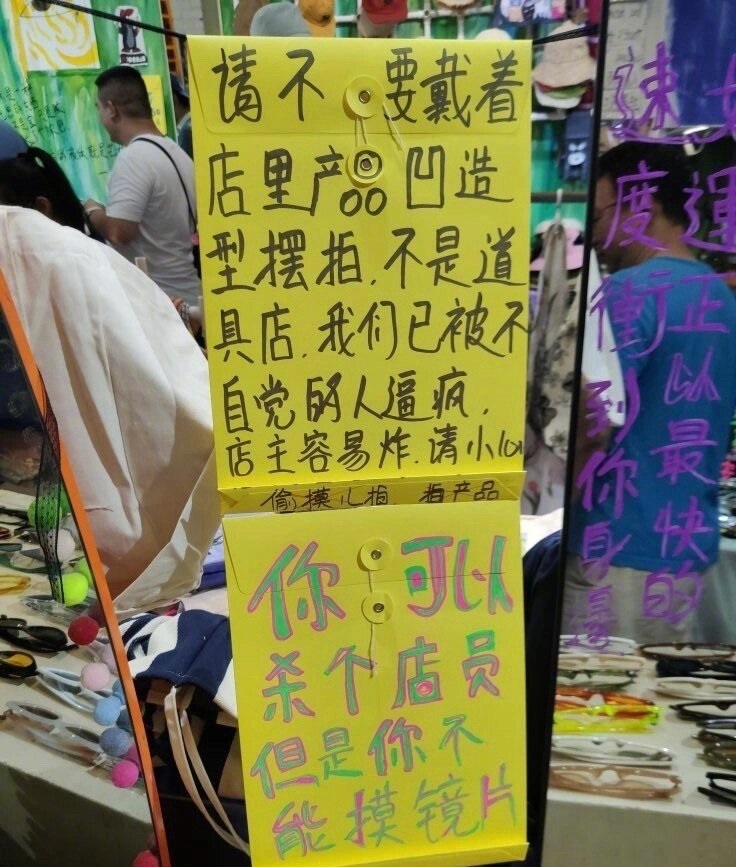 请不 要戴着
店里产品凹造
型摆拍,不是道
具店,我们已被不
自觉的人逼疯,
店主容易炸.请小心
偷摸儿拍 拍产品
你 可以
杀个店员
但是你不
能摸镜片
運正以最快的
速度衝到你身邊